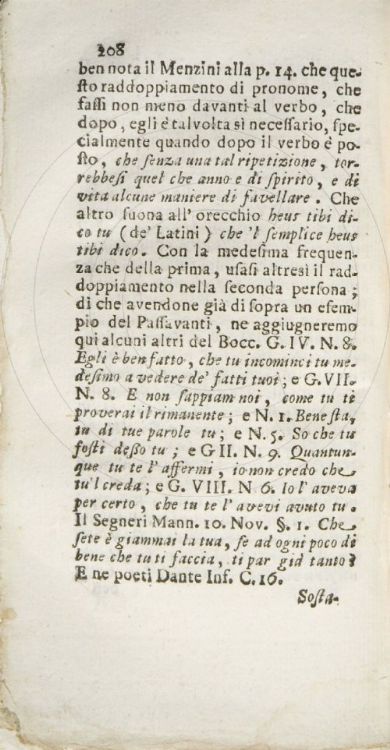 208
ben nota il Menzini alla p. 14. che que-
sto raddoppiamento di pronome, che
fassi non meno davanti al verbo, che
dopo, egli è talvolta sì necessario, spe-
cialmente quando dopo il verbo è po-
sto, che senza una tal ripetizione, tor-
rebbesi quel che anno e di spirito, e di
vita alcune maniere di favellare. Che
altro suona all' orecchio heus tibi di-
co tu (de' Latini) che 'l semplice heus
tibi dico. Con la medesima frequen-
za che della prima, usasi altresì il rad-
doppiamento nella seconda persona;
di che avendone già di sopra un esem-
pio del Passavanti, ne aggiugneremo
qui alcuni altri del Bocc. G. IV. N. 8.
Egli è ben fatto, che tu incominci tu me-
desimo a vedere de' fatti tuoi; e G. VII.
N. 8. E non sappiam noi, come tu ti
proverai il rimanente; e N. 1. Bene sta,
tu di tue parole tu; e N. 5. So che tu
fosti desso tu; e G II. N. 9. Quantun-
que tu te l' affermi, io non credo che
tu 'l creda; e G. VIII. N 6. Io l' aveva
per certo, che tu te l' avevi avuto tu.
Il Segneri Mann. 10. Nov. §. 1. Che
sete è giammai la tua, se ad ogni poco di
bene che tu ti faccia, ti par gid tanto?
E ne poeti Dante Inf. C. 16.
Sosta-